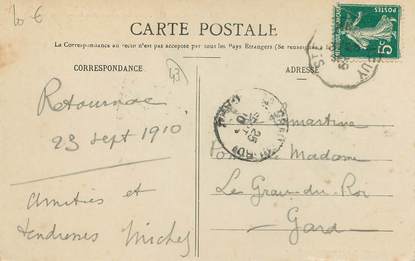 10 €
CARTE POSTALE
La Correspondance au recto n'est pas acceptée par tous les Pays Étrangers (Se renseigner
CORRESPONDANCE
ADRESSE
43
5c
POSTES
Retournac
23 sept 1910
Amitiés et
tendresses Michel
martine
Madame
Le Grau du Roi
Gard